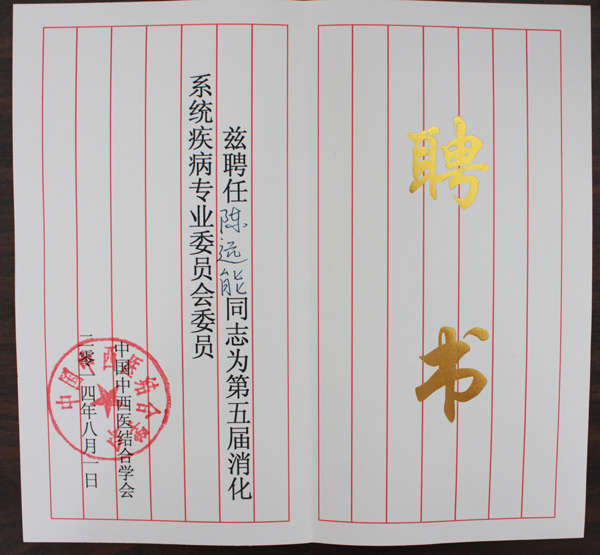 聘书
兹聘任陈远能同志为第五届消化
系统疾病专业委员会委员
中国中西医结合学会
二零一四年八月一日
中国中西医结合学会